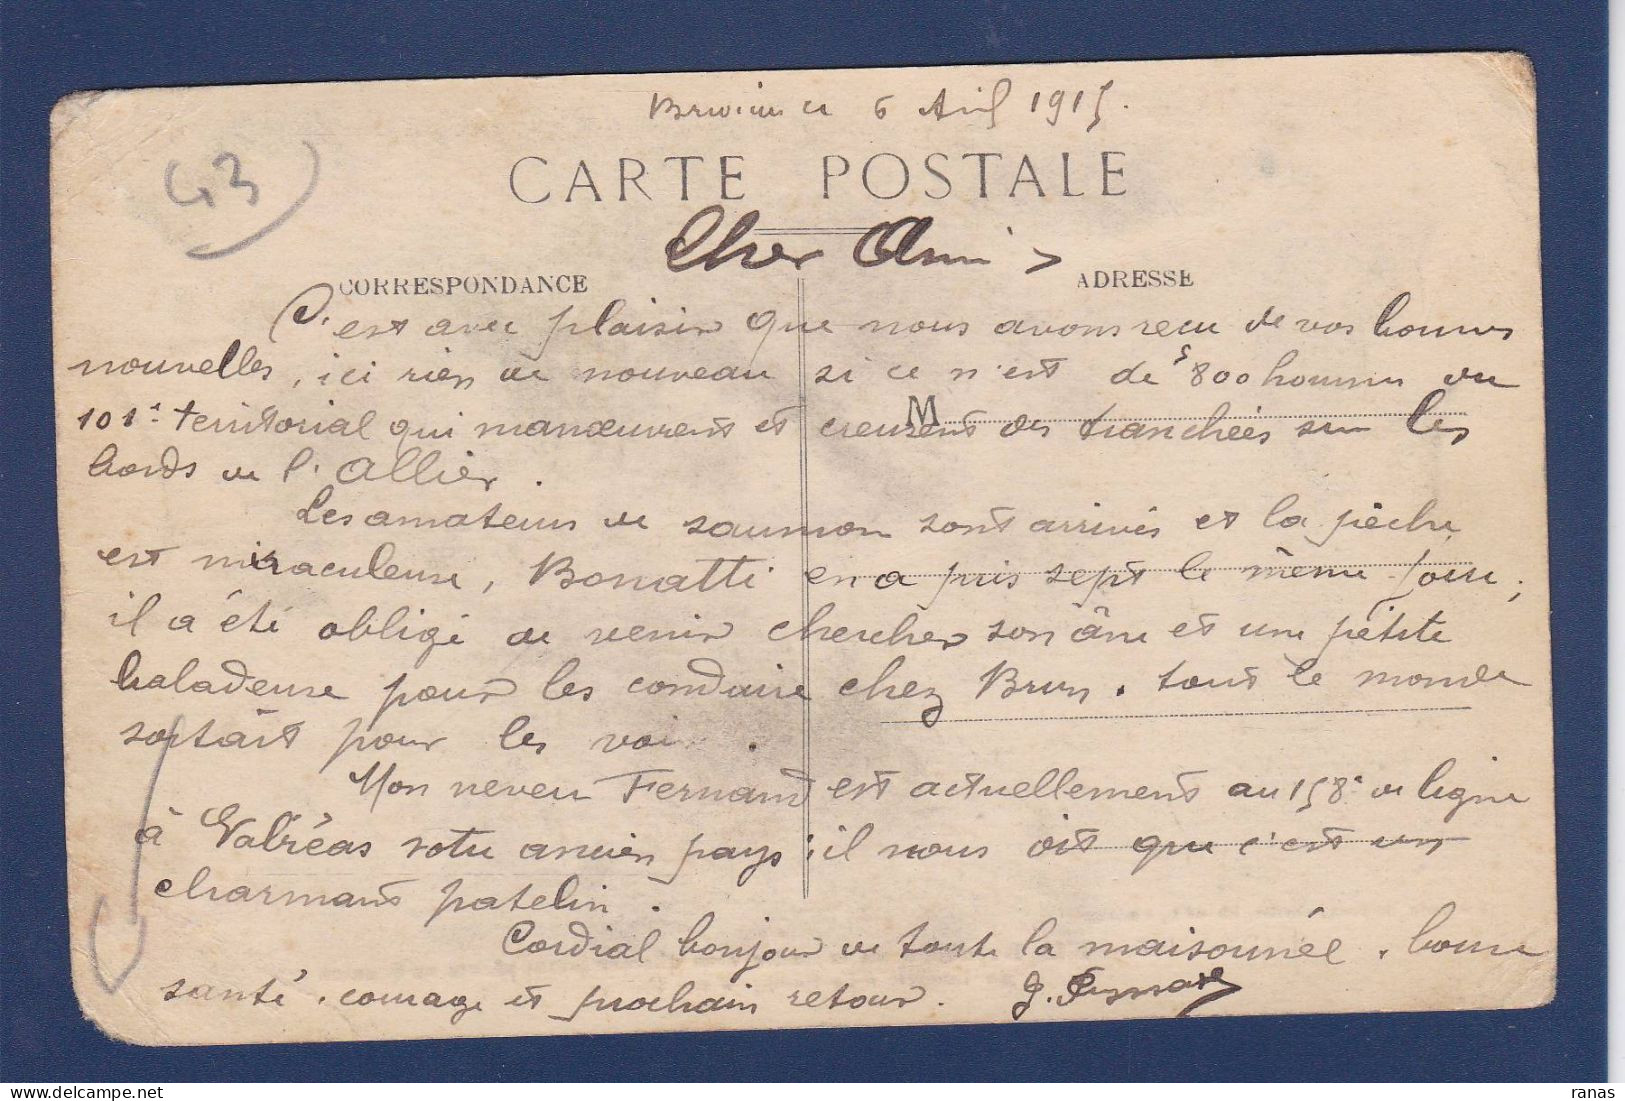 43
le 6 Avril 1915.
CARTE POSTALE
Cher Ami >
CORRESPONDANCE
ADRESSE
C'est avec plaisir que nous avons recu de vos bonnes
nouvelles, ici rien de nouveau si ce n'est des 800 hommes du
101e territorial qui manœuvrent et creusent des tranchées sur les
M
bords de l'Allier.
Les amateurs de saumon sont arrivés et la pêche
est miraculeuse, Bonatti en a pris sept le même jour,
il a été obligé de venir chercher son âne et une pétite
baladeuse pour les conduire chez Brun. tout le monde
sortait pour les voir.
Mon neveu Fernand est actuellement au 158e de ligne
à Valréas votre ancien pays; il nous dit que c'est un
charmant patelin.
Cordial bonjour de toute la maisonnée. bonne
santé. courage et prochain retour. J.
ranas